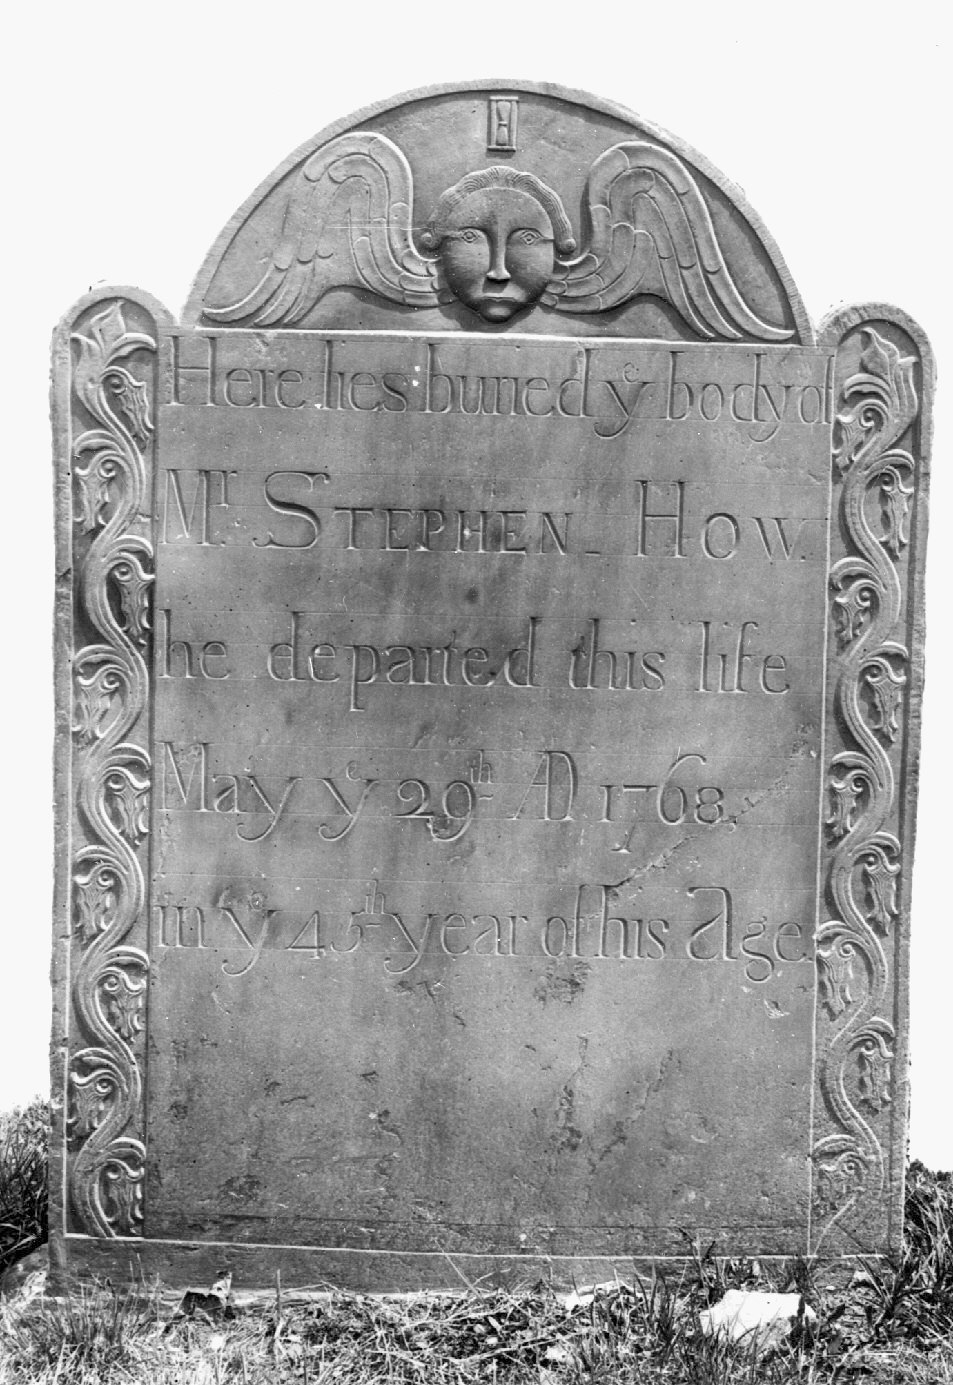 Here lies buried yᵉ body of
Mʳ STEPHEN HOW
he departed this life
May yᵉ 29ᵗʰ AD 1768,
in yᵉ 45ᵗʰ year of his Age